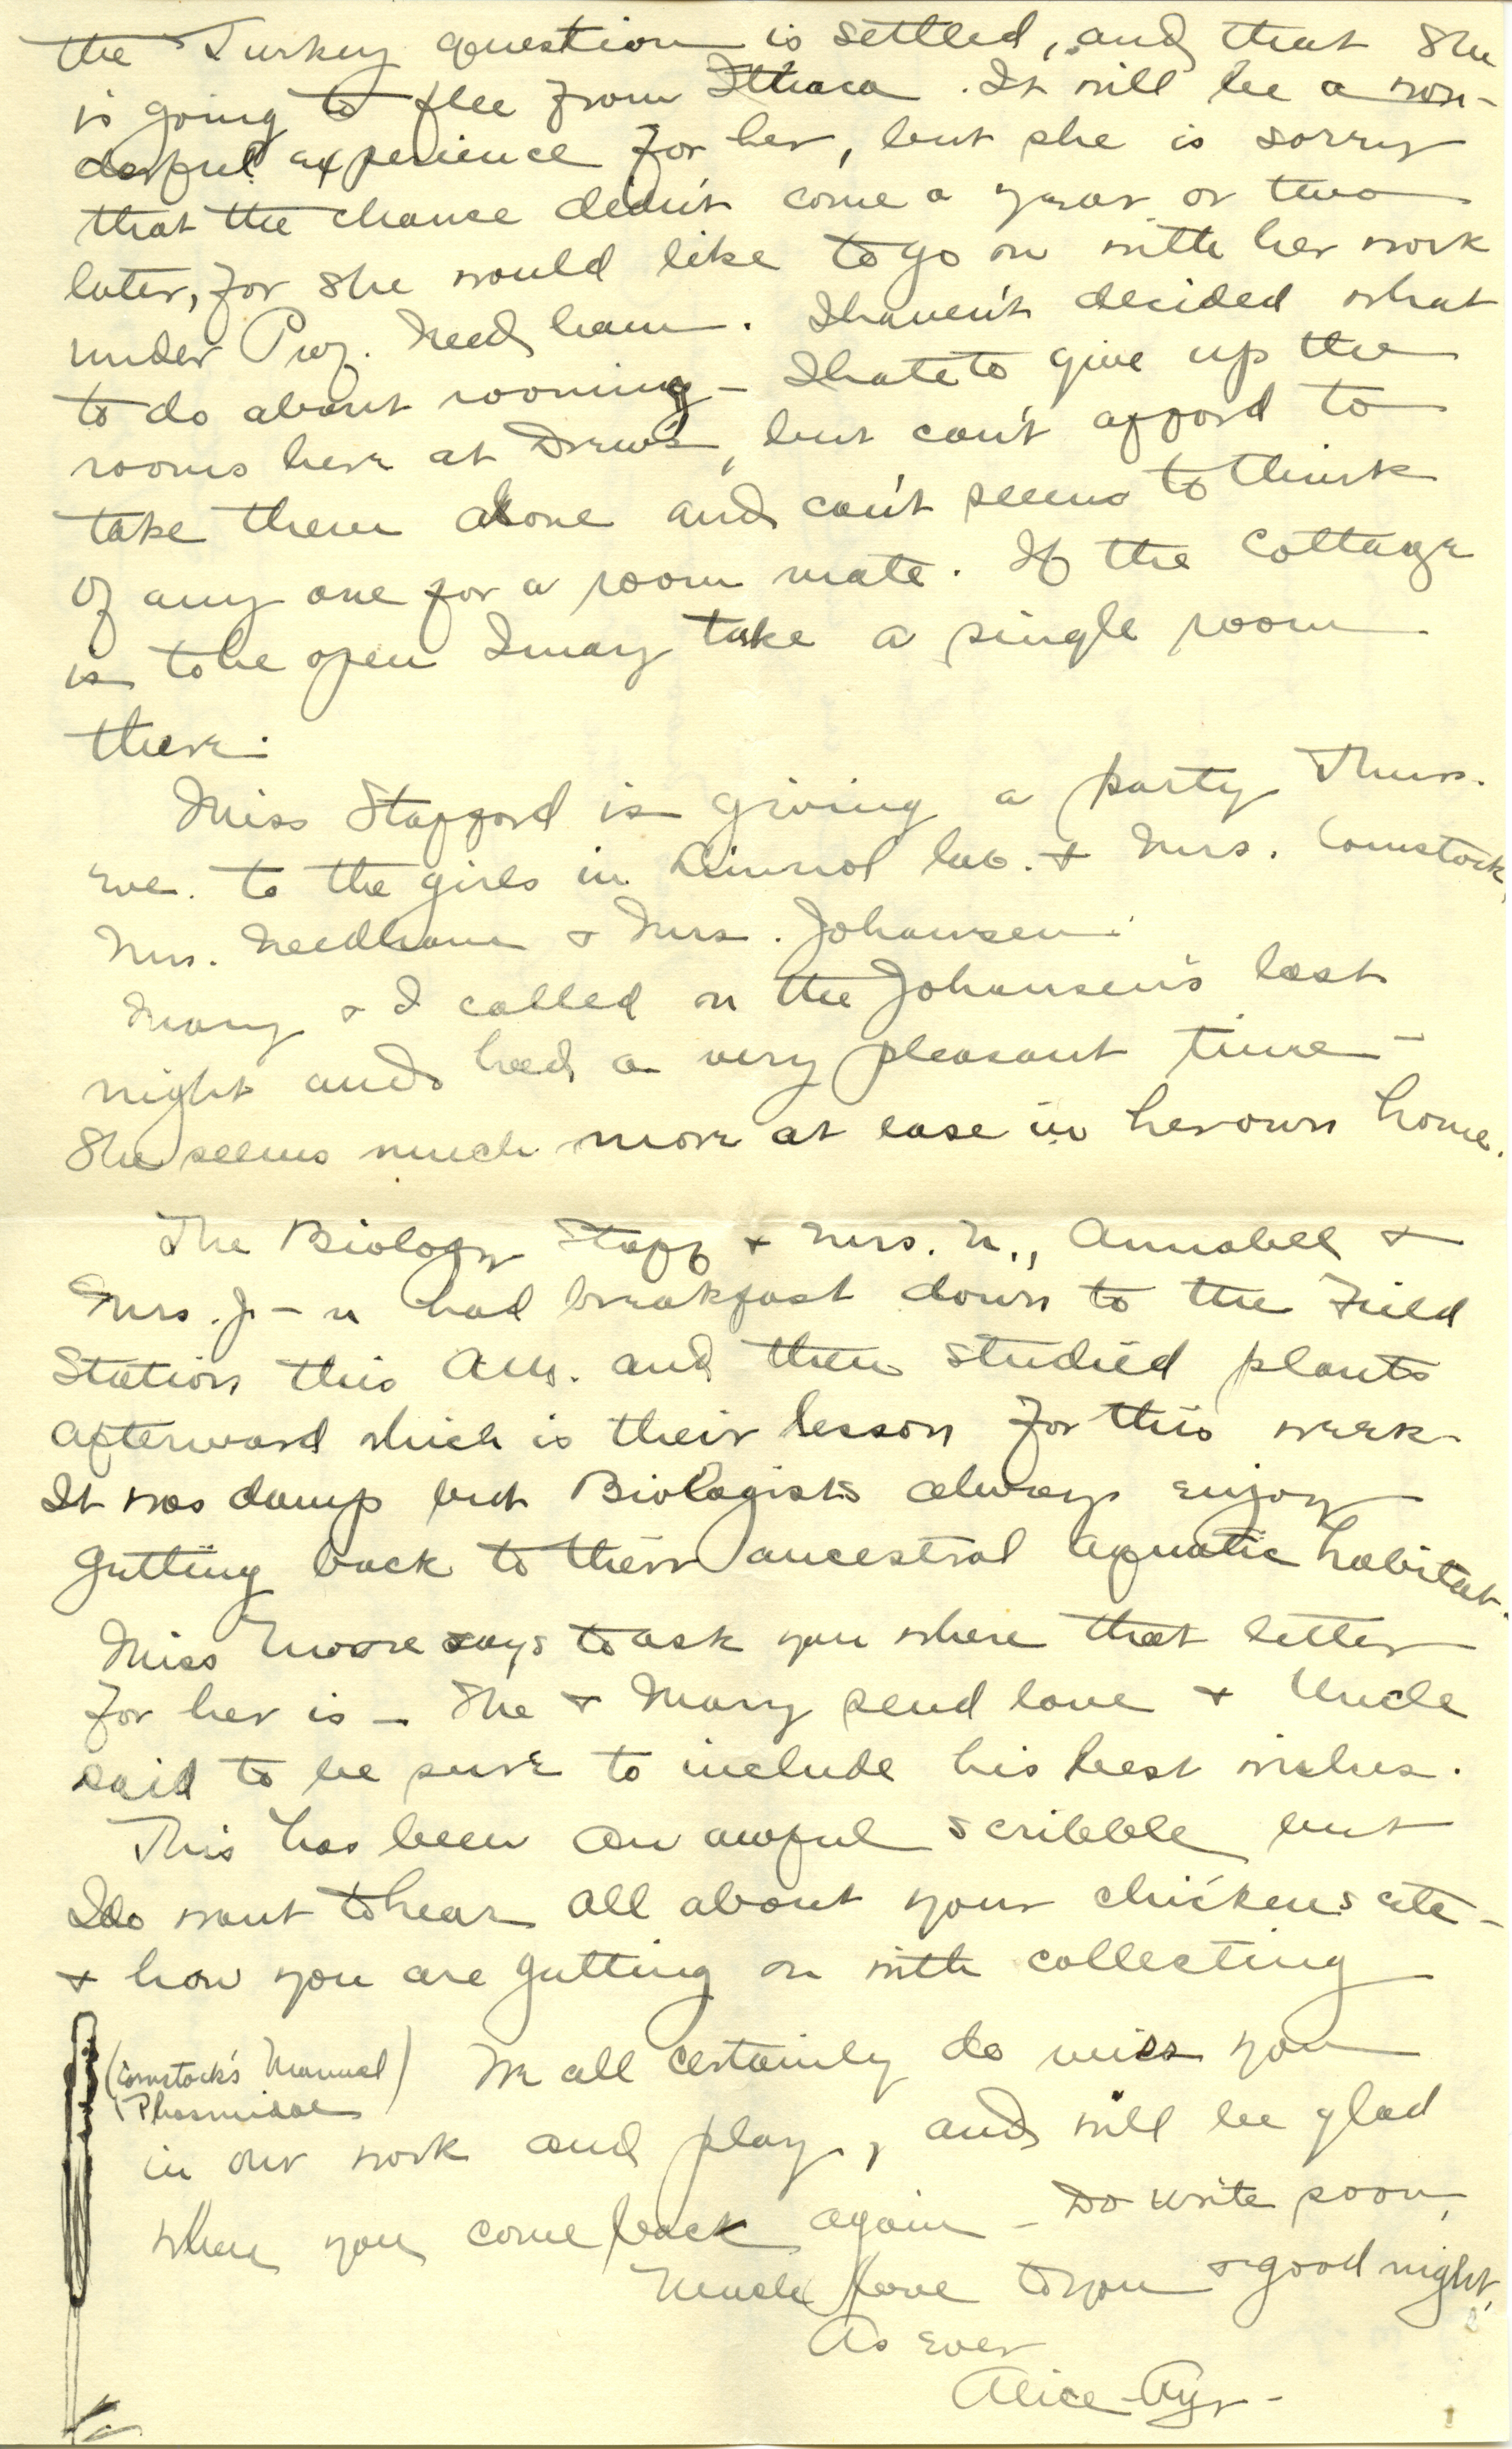 the Turkey question is settled, and that she
is going to flee from Ithaca. It will be a won-
derful experience for her, but she is sorry
that the chance didn't come a year or two
later, for she would like to go on with her work
under Prof. Needham. I haven't decided what
to do about rooming - I hate to give up the
rooms here at Drew's, but can't afford to
take them alone and can't seem to think
of any one for a room mate. If the Cottage
is to be open I may take a single room
there.
Miss Stafford is giving a party Thurs.
eve. to the girls in Limnol lab. & Mrs. Comstock,
Mrs. Needham & Mrs. Johannsen.
Mary & I called on the Johannsen's last
night and had a very pleasant time -
She seems much more at ease in her own home.
The Biology Staff & Mrs. N., Annabell &
Mrs. J-n had breakfast down to the Field
Station this AM. and then studied plants
afterward which is their lesson for this week.
It was damp but Biologists always enjoy
getting back to their ancestral aquatic habitat.
Miss Moore says to ask you where that letter
for her is - She & Mary send love & Uncle
said to be sure to include his best wishes.
This has been an awful scribble but
I do want to hear all about your chickens etc -
& how you are getting on with collecting
(Comstock's Manual
Phasmidae)
We all certainly do miss you
in our work and play, and will be glad
when you come back again - Do write soon,
Much love to you & good night,
As ever
Alice Ayr-